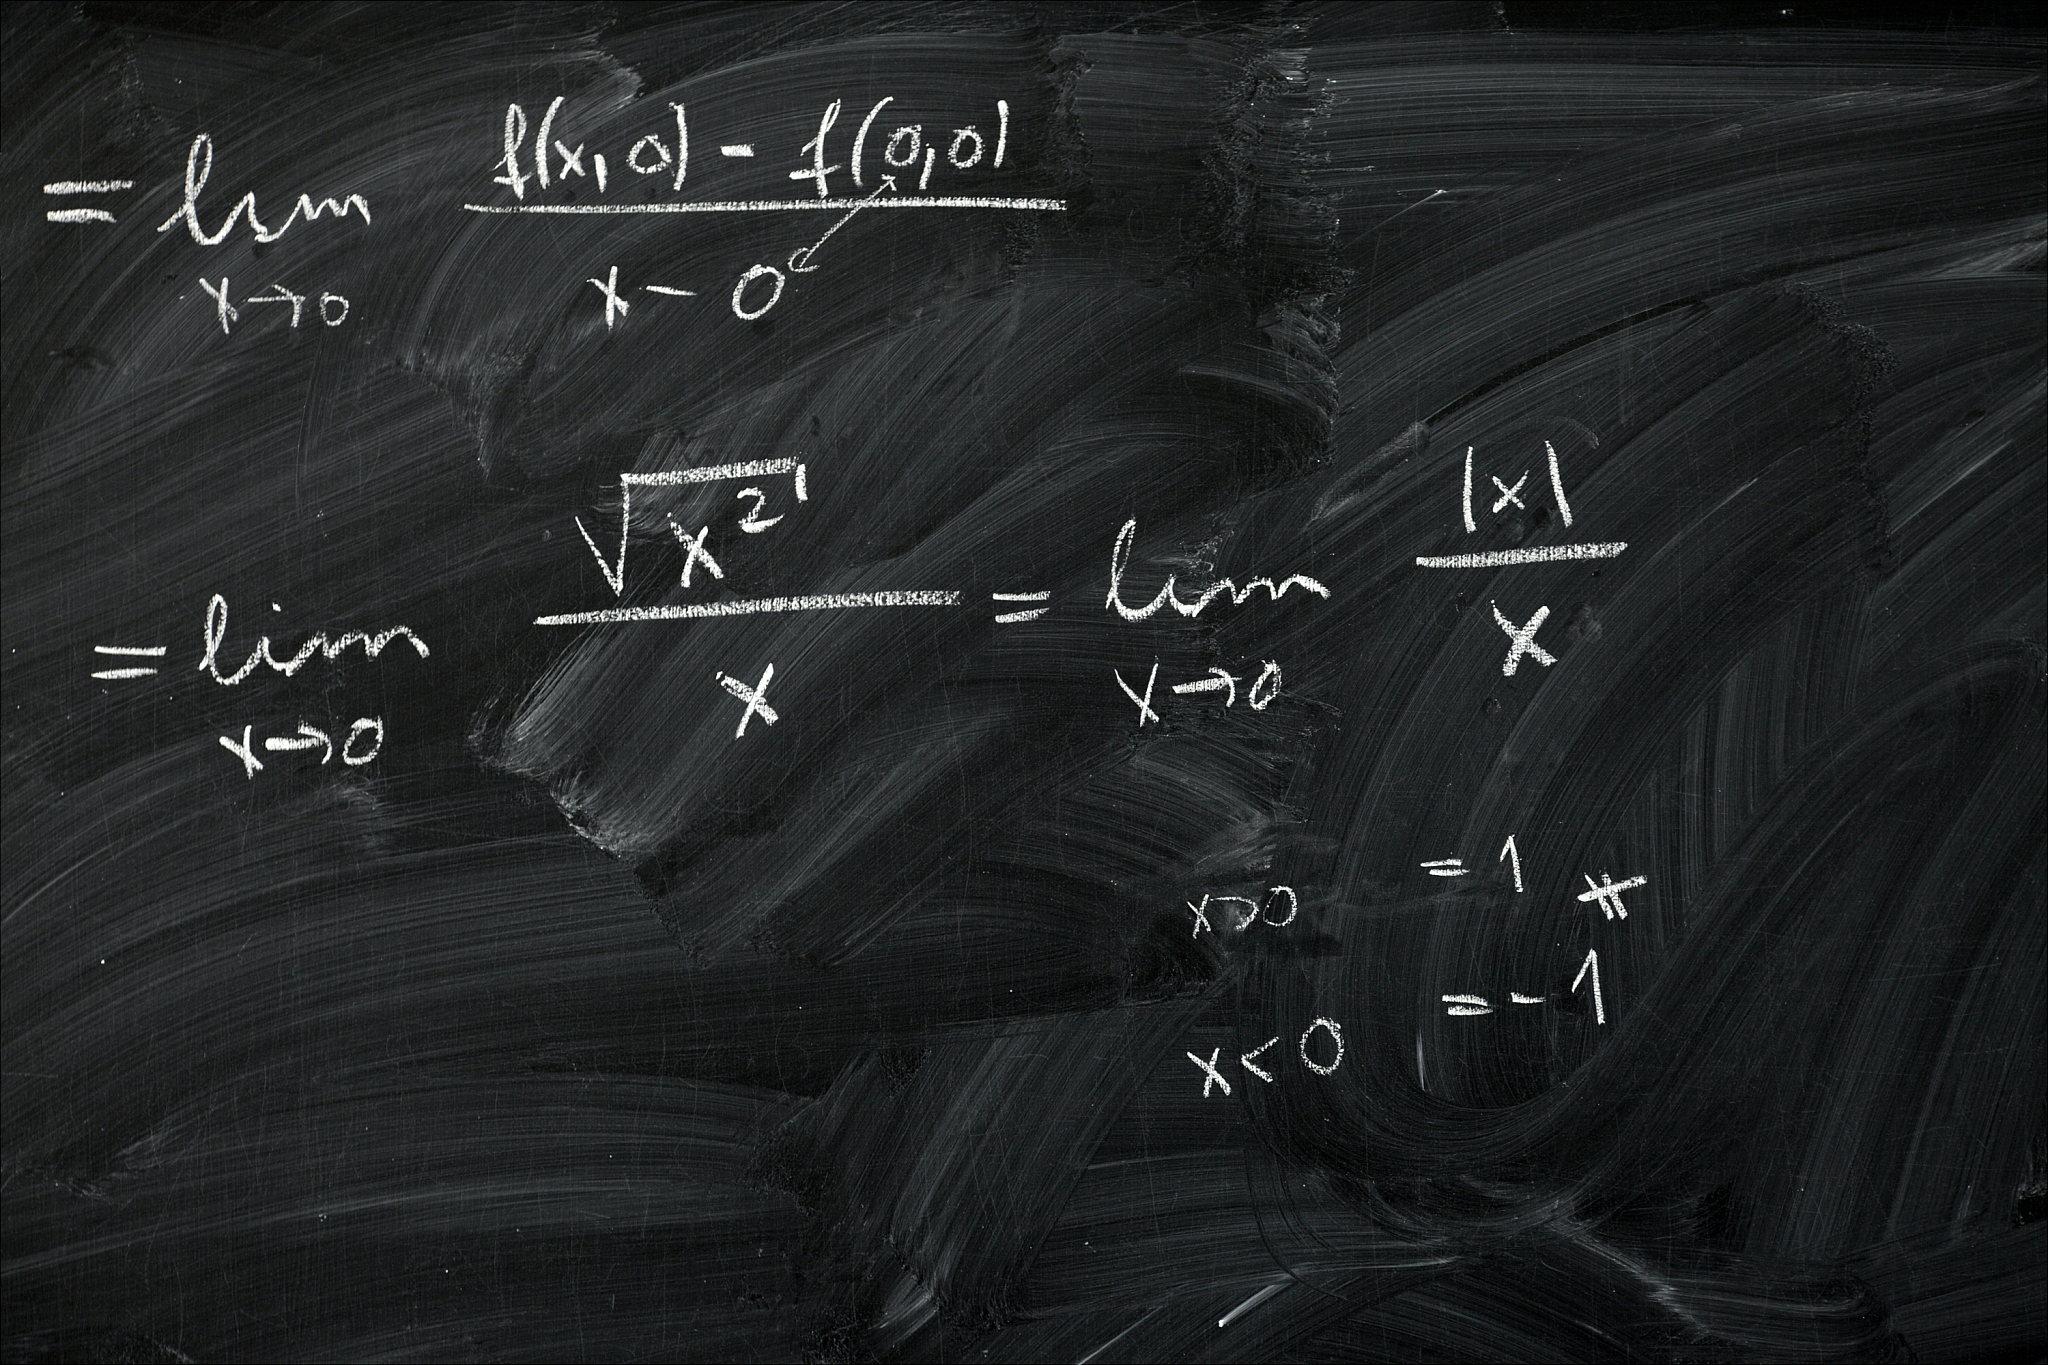 = lim x→0 f(x,0) - f(0,0) / x - 0
= lim x→0 √x² / x = lim x→0 |x| / x
x>0 = 1
≠
x<0 = -1